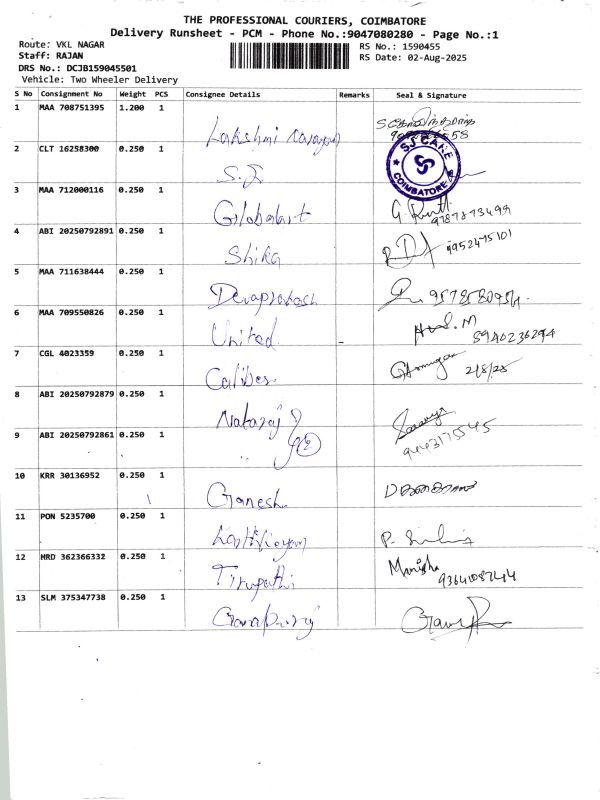 THE PROFESSIONAL COURIERS, COIMBATORE
Delivery Runsheet - PCM - Phone No.:9047080280 - Page No.:1
Route: VKL NAGAR
Staff: RAJAN
DRS No.: DCJB159045501
Vehicle: Two Wheeler Delivery
RS No.: 1590455
RS Date: 02-Aug-2025
S No Consignment No Weight PCS Consignee Details Remarks Seal & Signature
1 MAA 708751395 1.200 1 Lakshmi narayan
2 CLT 16258300 0.250 1 S.J SJ CARE COIMBATORE
3 MAA 712000116 0.250 1 Globalart G 9787873499
4 ABI 20250792891 0.250 1 Shika 9952475101
5 MAA 711638444 0.250 1 Devaprakash
6 MAA 709550826 0.250 1 United - 8940236294
7 CGL 4023359 0.250 1 Caliber 2/8/25
8 ABI 20250792879 0.250 1 Nataraj
9 ABI 20250792861 0.250 1 " (2) 9443175545
10 KRR 30136952 0.250 1 Ganesh
11 PON 5235700 0.250 1
12 MRD 362366332 0.250 1 Tirupathi Manisha
13 SLM 375347738 0.250 1